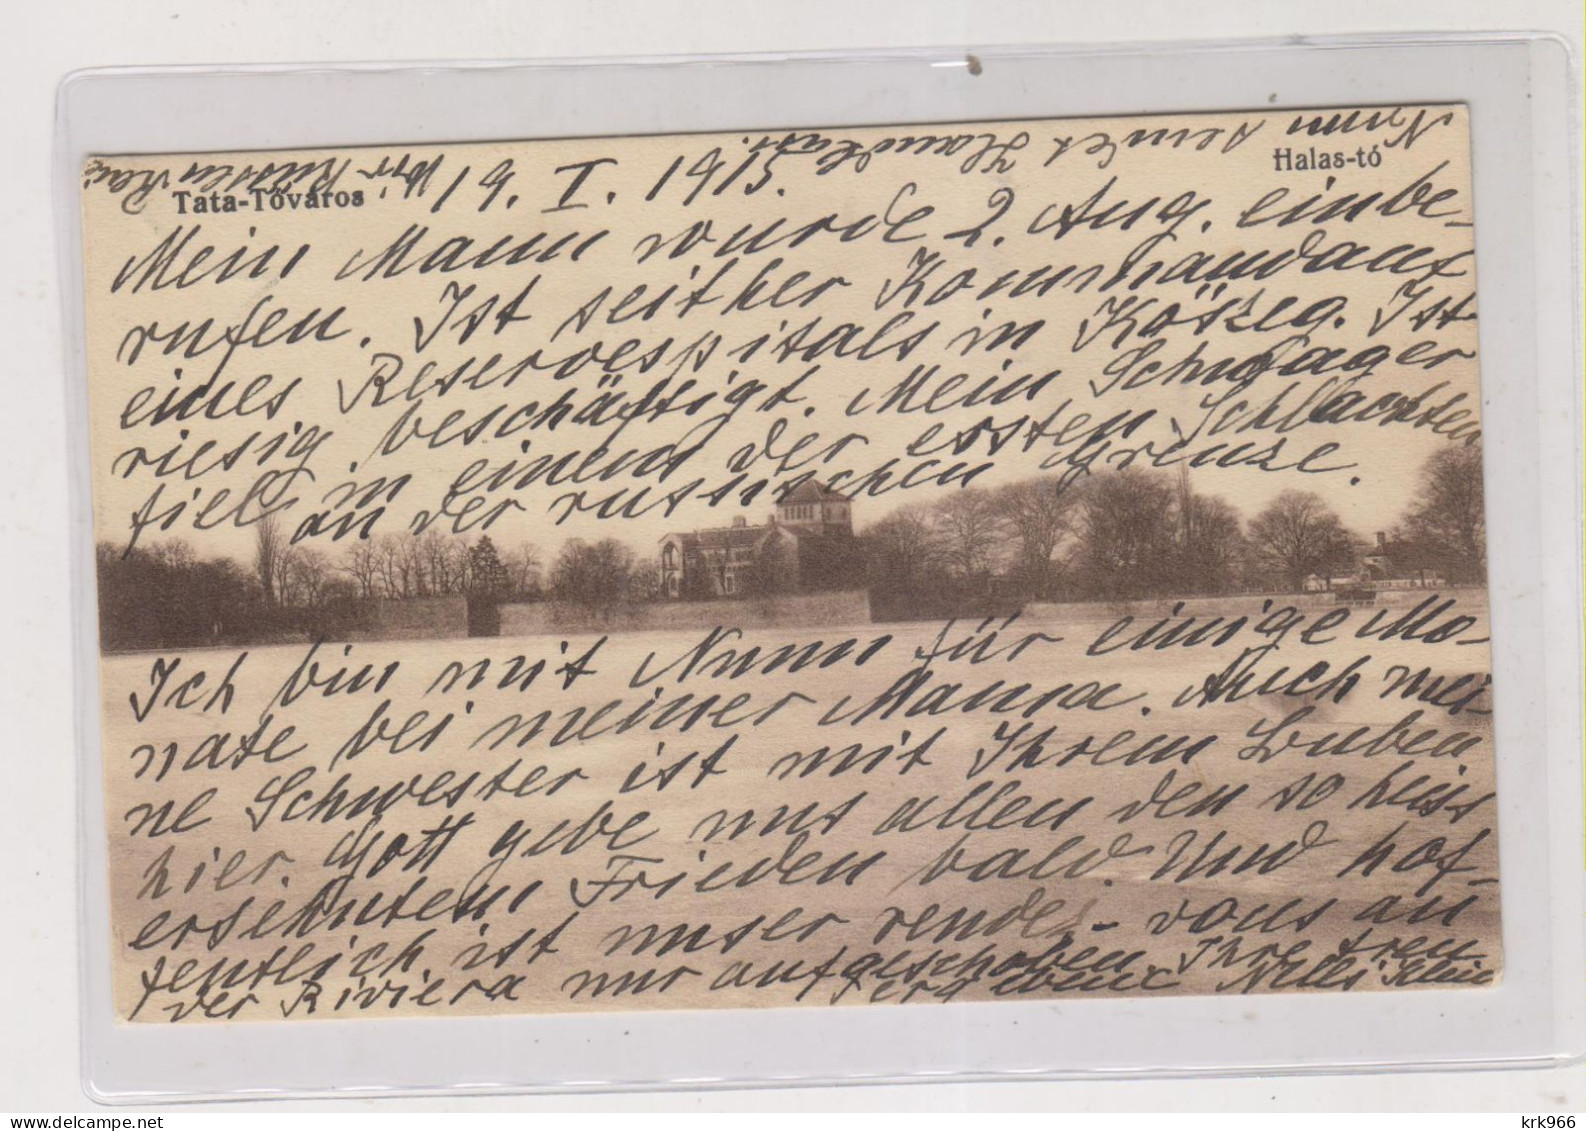 Tata-Tóváros
Halas-tó
19. I. 1915.
Mein Mann wurde 2. Aug. einbe-
rufen. Ist seither Kommandant
eines Reservespitals in Köszeg. Ist
riesig beschäftigt. Mein Schwager
fiel in einem der ersten Schlachten
an der russischen Grenze.
Ich bin mit Nunu für einige Mo-
nate bei meiner Mama. Auch mei-
ne Schwester ist mit Ihrem Buben
hier. Gott gebe uns allen den so heiss
ersehnten Frieden bald. Und hof-
fentlich ist unser rendes-vous an
der Riviera nur aufgeschoben. Ihre treu
ergebene Nelli Klein
Nunu sendet Handkuss.
Wir küssen
krk966